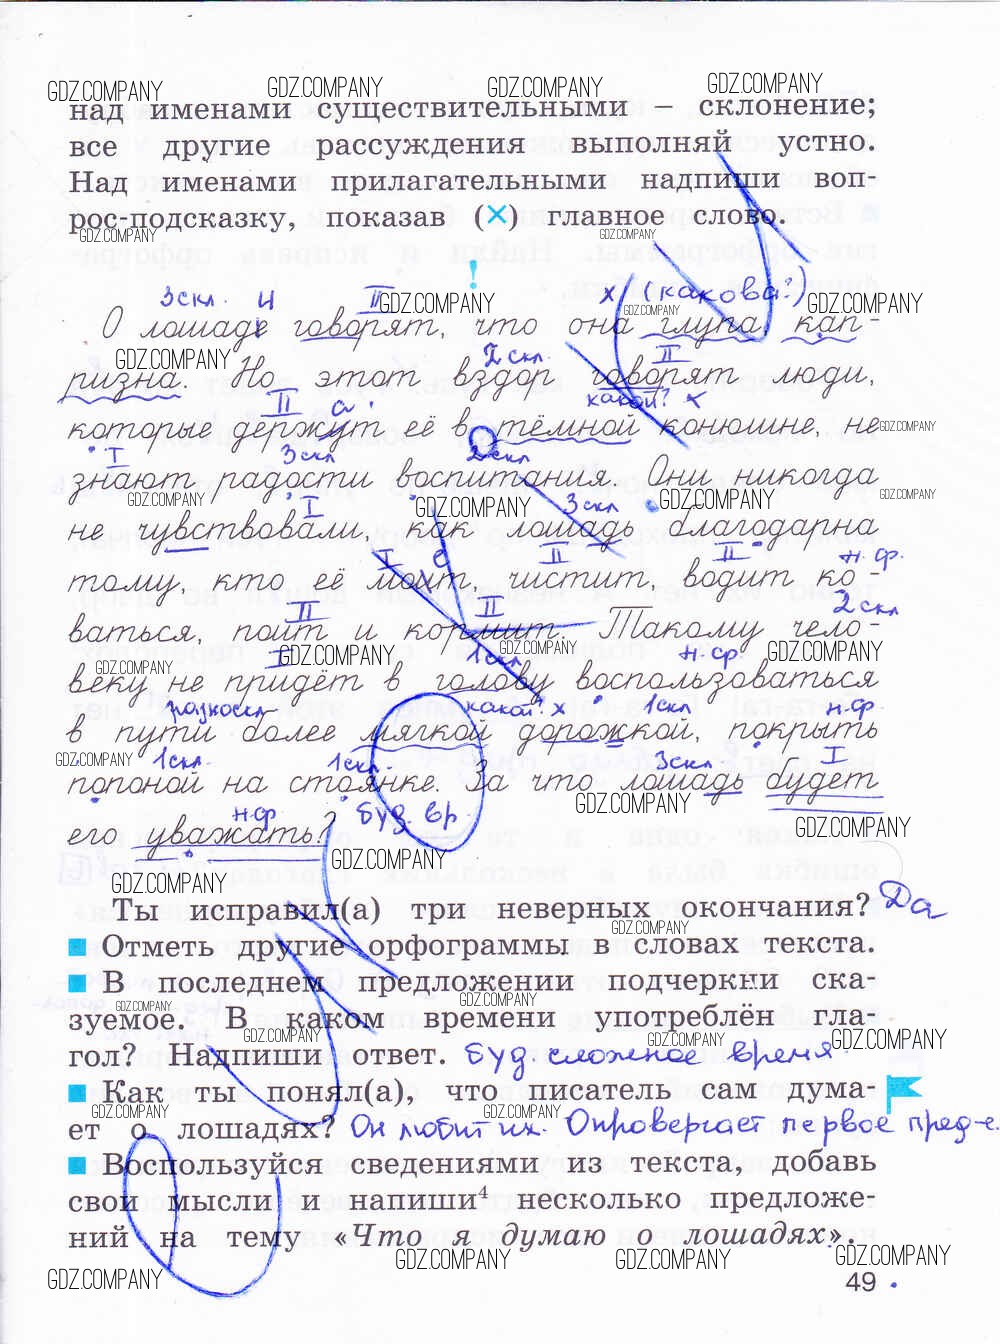 GDZ.COMPANY GDZ.COMPANY GDZ.COMPANY GDZ.COMPANY
над именами существительными – склонение;
все другие рассуждения выполняй устно.
Над именами прилагательными надпиши воп-
рос-подсказку, показав (×) главное слово.
GDZ.COMPANY GDZ.COMPANY
!
3скл. и II х (какова?)
GDZ.COMPANY GDZ.COMPANY GDZ.COMPANY
О лошаде говорят, что она глупа, кап-
GDZ.COMPANY 2скл. II
ризна. Но этот вздор говорят люди,
II а какой? х
которые держут её в тёмной конюшне, не
GDZ.COMPANY
I 3скл 2скл
знают радости воспитания. Они никогда
GDZ.COMPANY I GDZ.COMPANY 3скл GDZ.COMPANY GDZ.COMPANY
не чувствовали, как лошадь благодарна
I е II II н.ф.
тому, кто её моит, чистит, водит ко-
II II 2скл
ваться, поит и кормит. Такому чело-
GDZ.COMPANY I GDZ.COMPANY 1скл GDZ.COMPANY н.ф GDZ.COMPANY
веку не придёт в голову воспользоваться
разноскл какой? х 1скл н.ф
в пути более мягкой дорожкой, покрыть
GDZ.COMPANY 1скл 1скл 3скл I
попоной на стоянке. За что лошадь будет
GDZ.COMPANY
н.ф буд. вр. GDZ.COMPANY
его уважать?
GDZ.COMPANY
GDZ.COMPANY
Ты исправил(а) три неверных окончания? Да
GDZ.COMPANY
Отметь другие орфограммы в словах текста.
В последнем предложении подчеркни ска-
GDZ.COMPANY GDZ.COMPANY
зуемое. В каком времени употреблён гла
GDZ.COMPANY GDZ.COMPANY GDZ.COMPANY
гол? Надпиши ответ. буд. сложное время.
Как ты понял(а), что писатель сам дума-
GDZ.COMPANY GDZ.COMPANY
ет о лошадях? Он любит их. Опровергает первое пред-е.
Воспользуйся сведениями из текста, добавь
свои мысли и напиши⁴ несколько предложе-
ний на тему «Что я думаю о лошадях».
GDZ.COMPANY GDZ.COMPANY GDZ.COMPANY GDZ.COMPANY
49